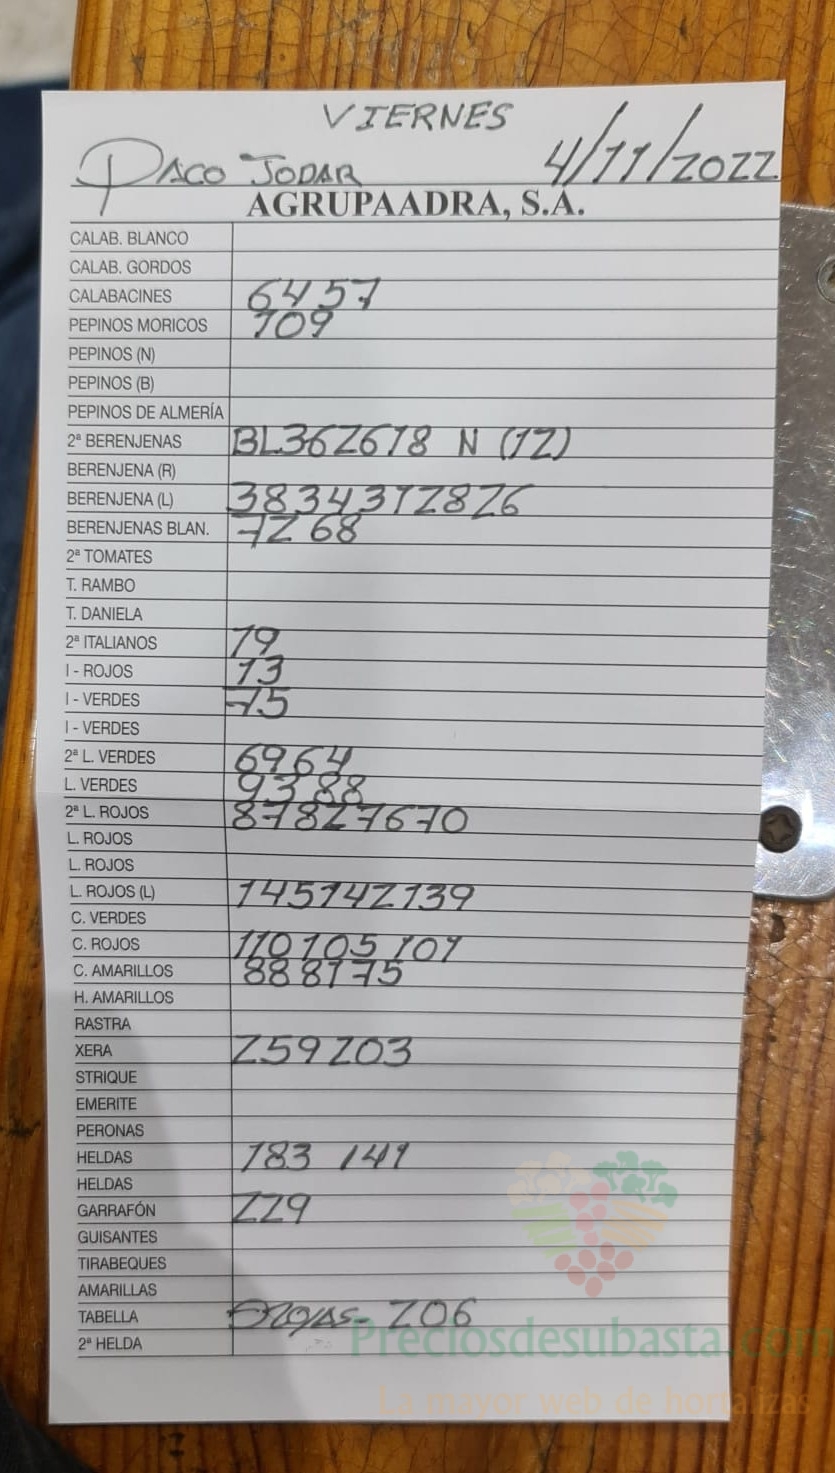 VIERNES
PACO JODAR 4/11/2022
AGRUPAADRA, S.A.
CALAB. BLANCO
CALAB. GORDOS
CALABACINES 64 57
PEPINOS MORICOS 109
PEPINOS (N)
PEPINOS (B)
PEPINOS DE ALMERÍA
2ª BERENJENAS BL 36 26 18 N (12)
BERENJENA (R)
BERENJENA (L) 38 34 31 28 26
BERENJENAS BLAN. 72 68
2ª TOMATES
T. RAMBO
T. DANIELA
2ª ITALIANOS 19
I - ROJOS 13
I - VERDES 75
I - VERDES
2ª L. VERDES 69 64
L. VERDES 93 88
2ª L. ROJOS 87 82 76 70
L. ROJOS
L. ROJOS
L. ROJOS (L) 145 142 139
C. VERDES
C. ROJOS 110 105 101
C. AMARILLOS 88 81 75
H. AMARILLOS
RASTRA
XERA 259 203
STRIQUE
EMERITE
PERONAS
HELDAS 183 141
HELDAS
GARRAFÓN 229
GUISANTES
TIRABEQUES
AMARILLAS
TABELLA 206
2ª HELDA
Preciosdesubasta.com
La mayor web de hortalizas